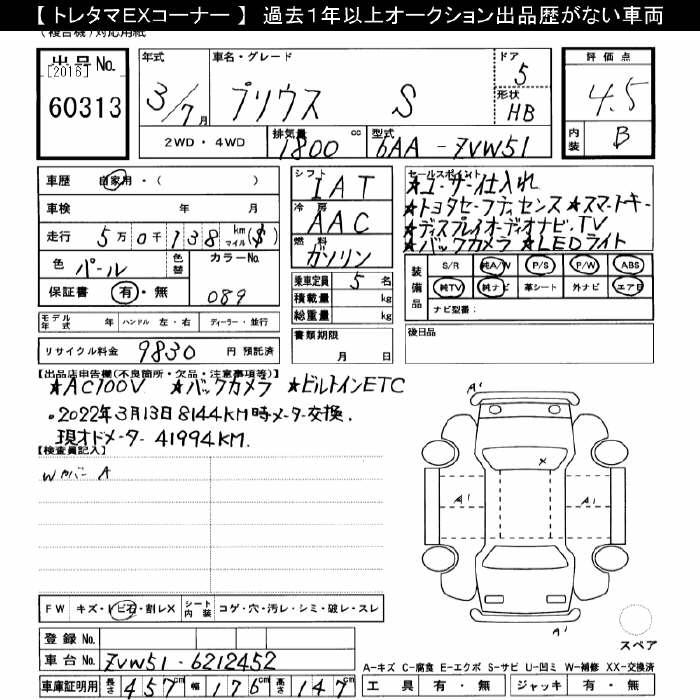 【 トレタマEXコーナー 】 過去１年以上オークション出品歴がない車両
(複合機)対応用紙
出品No.
[2016]
60313
年式
3/7月
車名・グレード
プリウス S
ドア
5
形状
HB
2WD・4WD
排気量
1800 cc
型式
6AA-ZVW51
評価点
4.5
内装
B
車歴 自家用・( )
車検 年 月
走行 5万0千138 km マイル($)
色 パール 色替 カラーNo.
保証書 有・無 089
シフト
IAT
冷房
AAC
燃料
ガソリン
乗車定員 5 名
積載量 kg
総重量 kg
セールスポイント
★ユーザー仕入れ
★トヨタセーフティセンス ★スマートキー
★ディスプレイオーディオナビ・TV
★バックカメラ ★LEDライト
装備品
S/R 純A/W P/S P/W ABS
純TV 純ナビ 革シート 外ナビ エアB
ナビ型番：
モデル年式 年 ハンドル 左・右 ディーラー・並行
リサイクル料金 9830 円 預託済
書類期限
月 日
後日品
【出品店申告欄(不良箇所・欠品・注意事項等)】
★AC100V ★バックカメラ ★ビルトインETC
・2022年3月13日8144KM時メーター交換.
現オドメーター 41994KM.
【検査員記入】
Wカバー A
A1
X
A1
A1
A1
FW キズ・トビ石・割レX シート内装 コゲ・穴・汚レ・シミ・破レ・スレ
登録No.
車台No. ZVW51-6212452
車庫証明用 長さ 457cm 幅 176cm 高さ 147cm
スペア
A-キズ C-腐食 E-エクボ S-サビ U-凹ミ W-補修 XX-交換済
工具 有・無 ジャッキ 有・無